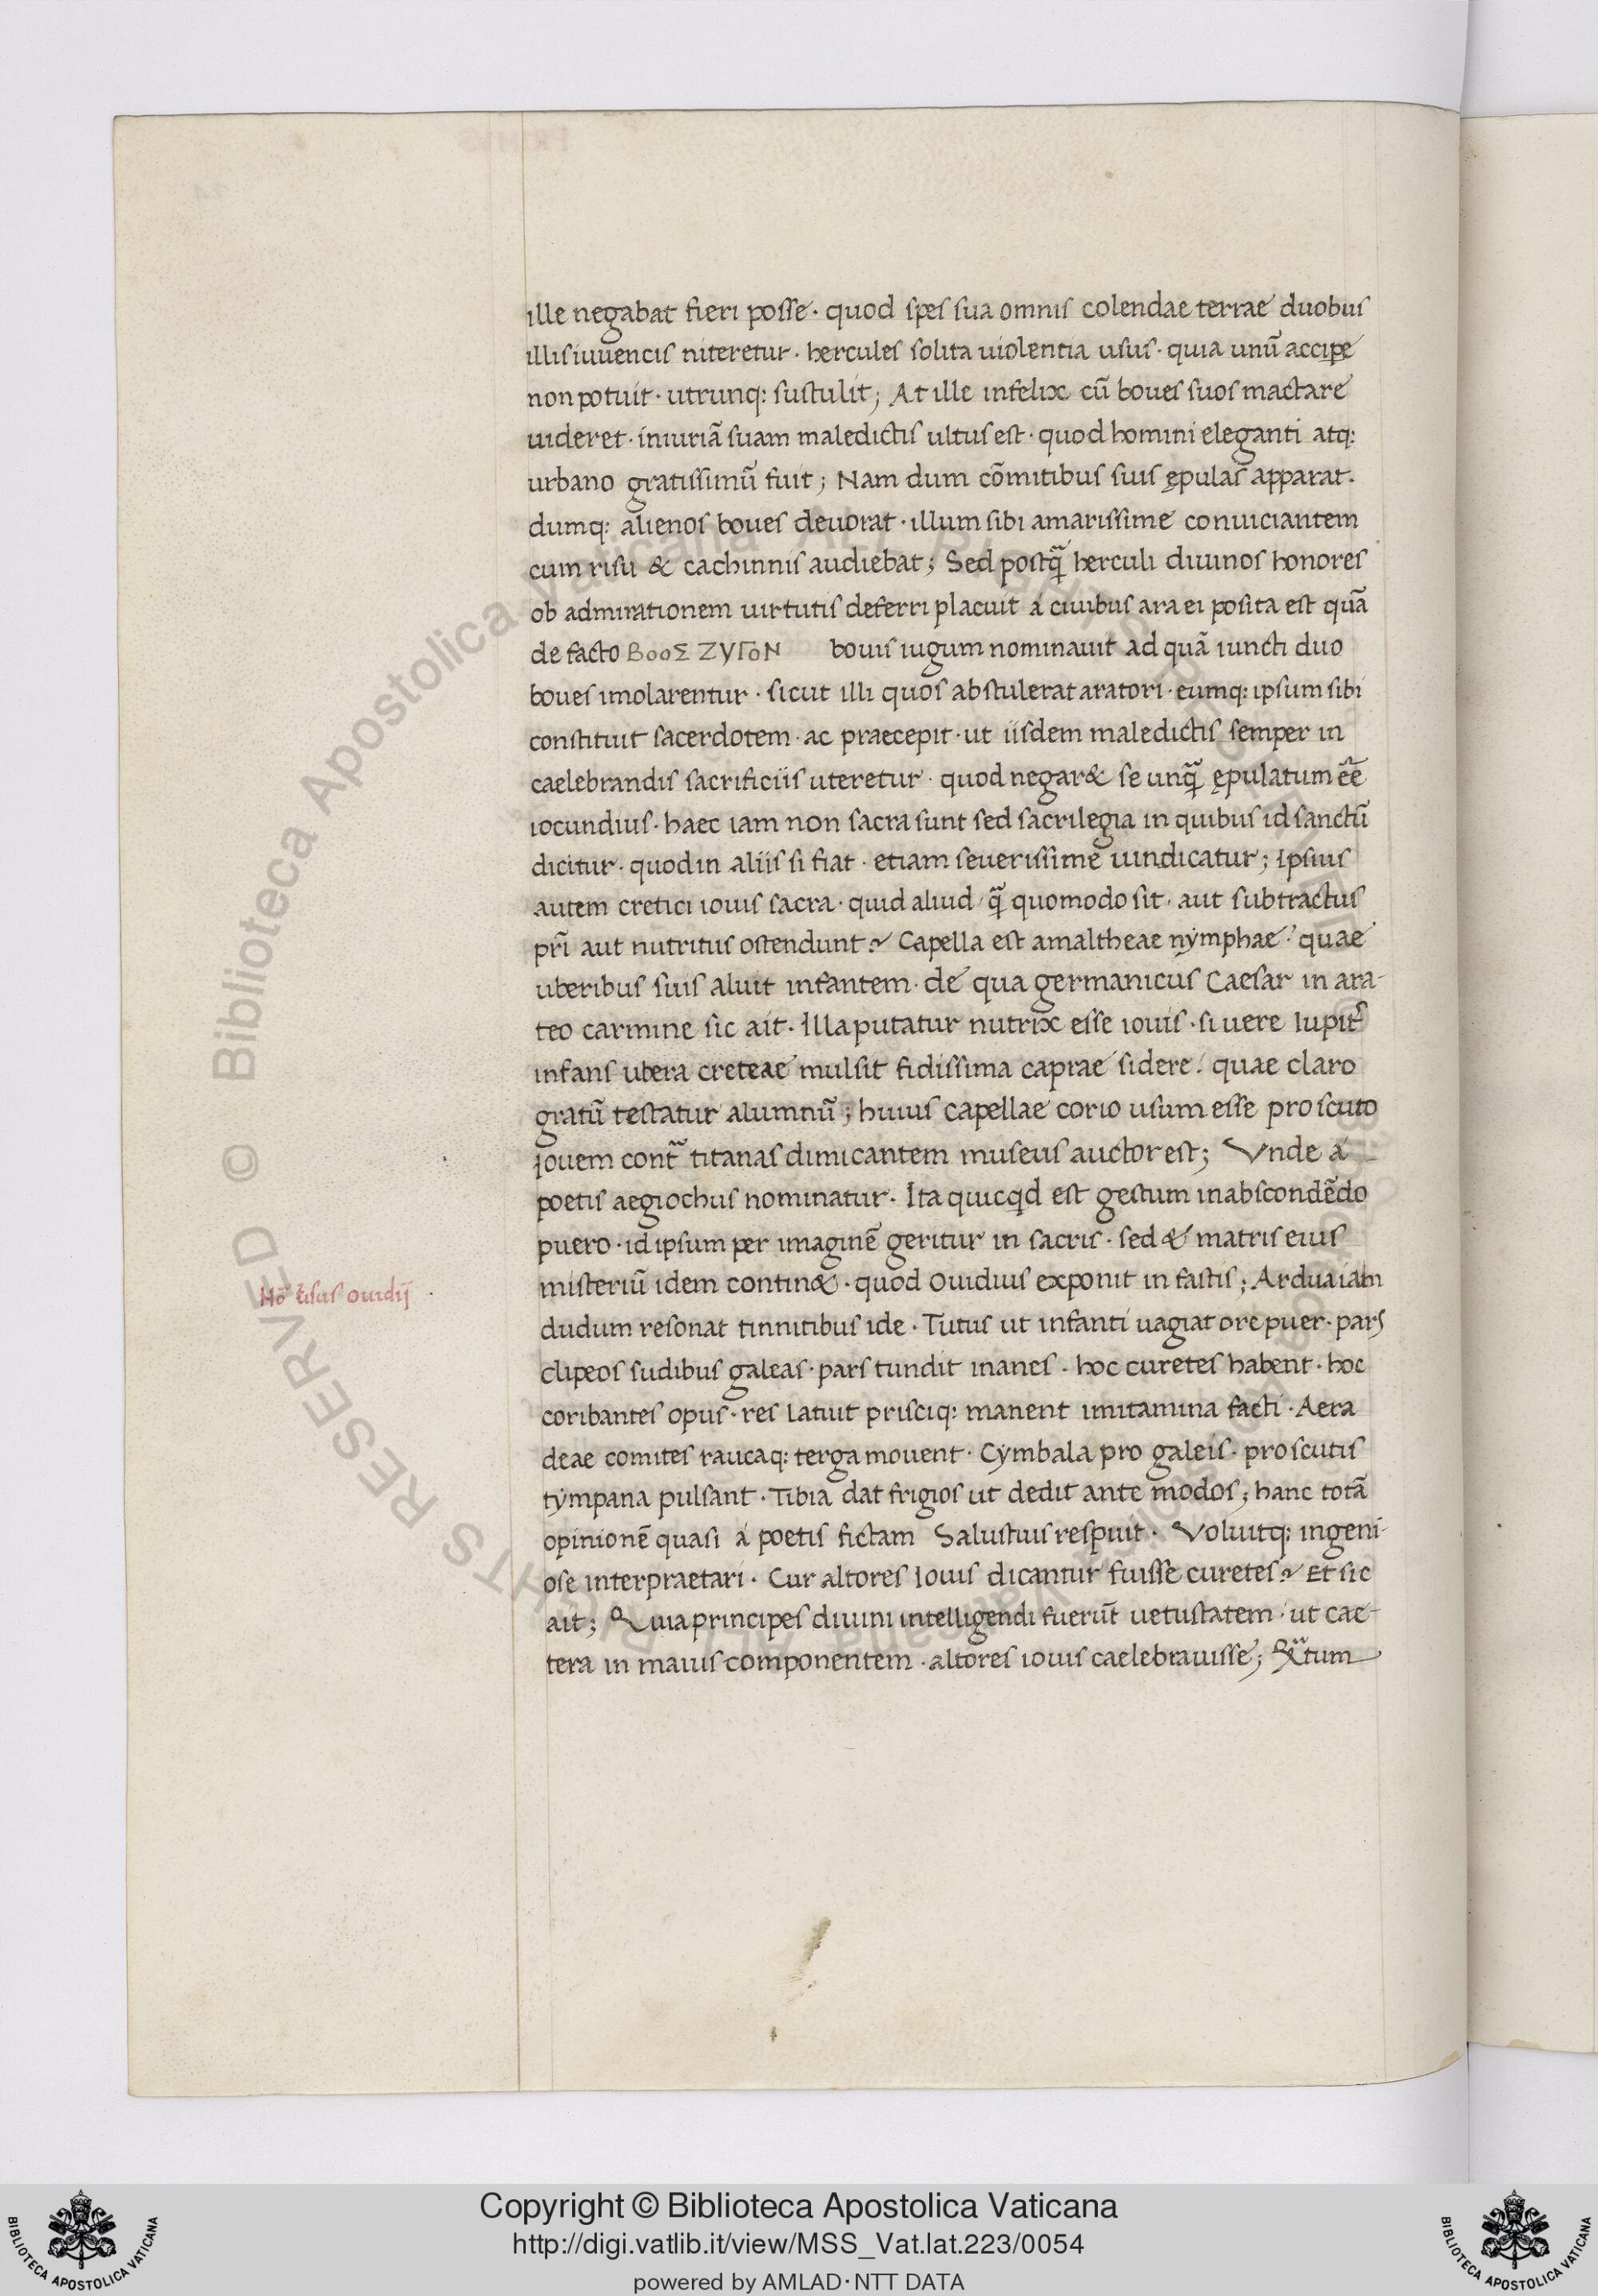 ille negabat fieri posse · quod spes sua omnis colendae terrae duobus
illis iuuencis niteretur · hercules solita uiolentia usus · quia unū accipe
non potuit · utrunq: sustulit ; At ille infelix cū boues suos mactare
uideret · iniuriā suam maledictis ultus est · quod homini eleganti atq:
urbano gratissimū fuit ; Nam dum cōmitibus suis ępulas apparat ·
dumq: alienos boues deuorat · illum sibi amarissime conuiciantem
cum risu & cachinnis audiebat ; Sed postq̃ herculi diuinos honores
ob admirationem uirtutis deferri placuit á ciuibus ara ei posita est quā
de facto ΒοοΣ ΖΥΓοΝ bouis iugum nominauit ad quā iuncti duo
boues imolarentur · sicut illi quos abstulerat aratori · eumq: ipsum sibi
constituit sacerdotem · ac praecepit · ut iisdem maledictis semper in
caelebrandis sacrificiis uteretur · quod negar& se unq̃ ępulatum ēē
iocundius · haec iam non sacra sunt sed sacrilegia in quibus id sanctū
dicitur · quod in aliis si fiat · etiam seuerissime uindicatur ; ipsius
autem cretici iouis sacra · quid aliud q̃ quomodo sit · aut subtractus
pr̄i aut nutritus ostendunt ? Capella est amaltheae nẏmphae · quae
uberibus suis aluit infantem · de qua germanicus Caesar in ara-
teo carmine sic ait · Illa putatur nutrix esse iouis · si uere Iupit᷑
infans ubera creteae mulsit fidissima caprae sidere · quae claro
gratū testatur alumnū ; huius capellae corio usum esse pro scuto
jouem cont̃ titanas dimicantem museus auctor est ; Vnde á
poetis aegiochus nominatur · Ita quicqd est gestum in abscondēdo
puero · id ipsum per imaginē geritur in sacris · sed & matris eius
misteriū idem contin& · quod Ouidius exponit in fastis ; Ardua iam
Hō ů̃sus ouidij
dudum resonat tinnitibus ide · Tutus ut infanti uagiat ore puer · pars
clipeos sudibus galeas · pars tundit inanes · hoc curetes habent · hoc
coribantes opus · res latiut prisciq: manent imitamina facti · Aera
deae comites raucaq: terga mouent · Cẏmbala pro galeis · pro scutis
tẏmpana pulsant · Tibia dat frigios ut dedit ante modos ; hanc totā
opinionē quasi á poetis fictam Salustius respuit · Voluitq: ingeni-
ose interpraetari · Cur altores Iouis dicantur fuisse curetes ? Et sic
ait ; Quia principes diuini intelligendi fuerūt uetustatem · ut cae-
tera in maius componentem · altores iouis caelebrauisse ; Q̃tum
Copyright © Biblioteca Apostolica Vaticana
http://digi.vatlib.it/view/MSS_Vat.lat.223/0054
powered by AMLAD·NTT DATA